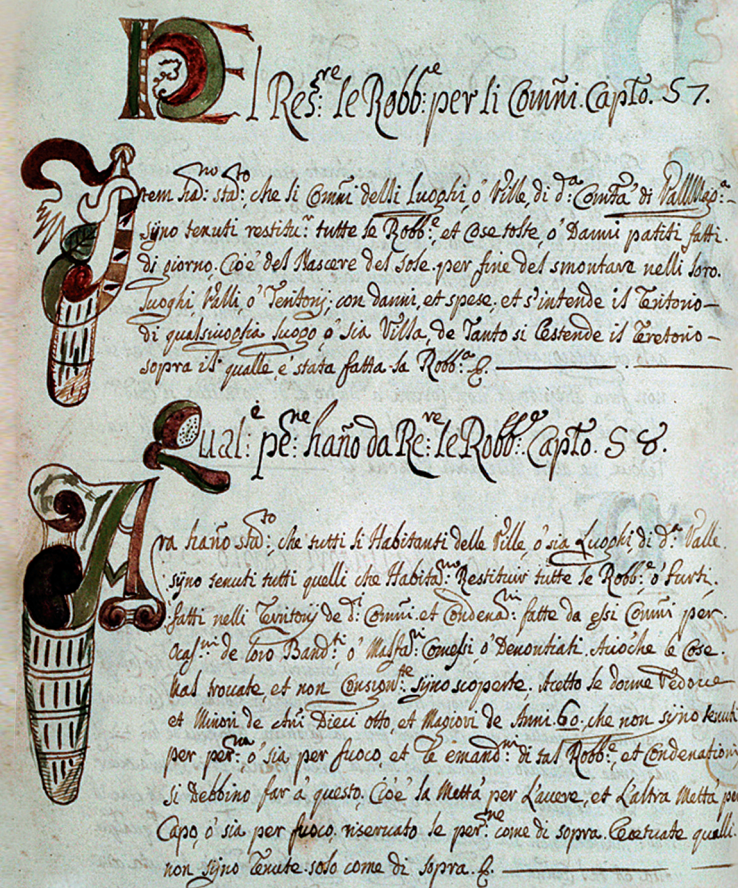 Del Res:re le Robb:e per li Comñi. Capto. 57.
Item ha:no sta:to, che li Comñi delli Luoghi, ò Ville, di d:a Comta di ValMag:a
sijno tenuti restitu:r tutte le Robb:e, et Cose tolte, ò Danni patiti fatti.
di giorno. Cioè del Nascere del Sole. per fine del smontare nelli loro.
Luoghi, Valli, ò Teritorij; con danni, et spese, et s'intende il Teritorio
di qualsivoglia luogo ò sia Villa, de Tanto si Cestende il Teretorio
sopra il qualle, è stata fatta la Robb:a
Qual:e pe:ne haño da Re:ve le Robb:e Capto. 58.
Ara haño sta:to, che tutti li Habitanti delle Ville, ò sia Luoghi, di d:a Valle.
sijno tenuti tutti quelli che Habita:no Restituir tutte le Robb:e, ò furti,
fatti nelli Territorij de d:i Comñi. et Condena:ni fatte da essi Comñi per
de loro Band:ti, ò Comessi, ò Denontiati. Acioche le Cose.
trovate, et non sijno scoperte. Acetto le donne Vedove
et Minori de Añi Dieci otto, et Magiori de Anni. 60. che non sijno tenuti
per per:na ò sia per fuoco, et le emand:ni di tal Robb:e, et Condenationi
si Debbino far à questo, Cioè la Metta per L'avere, et L'altra Metta per
Capo, ò sia per fuoco, riservato le per:ne come di sopra. Cecetuate quelli.
non sijno Tenute. solo come di sopra.